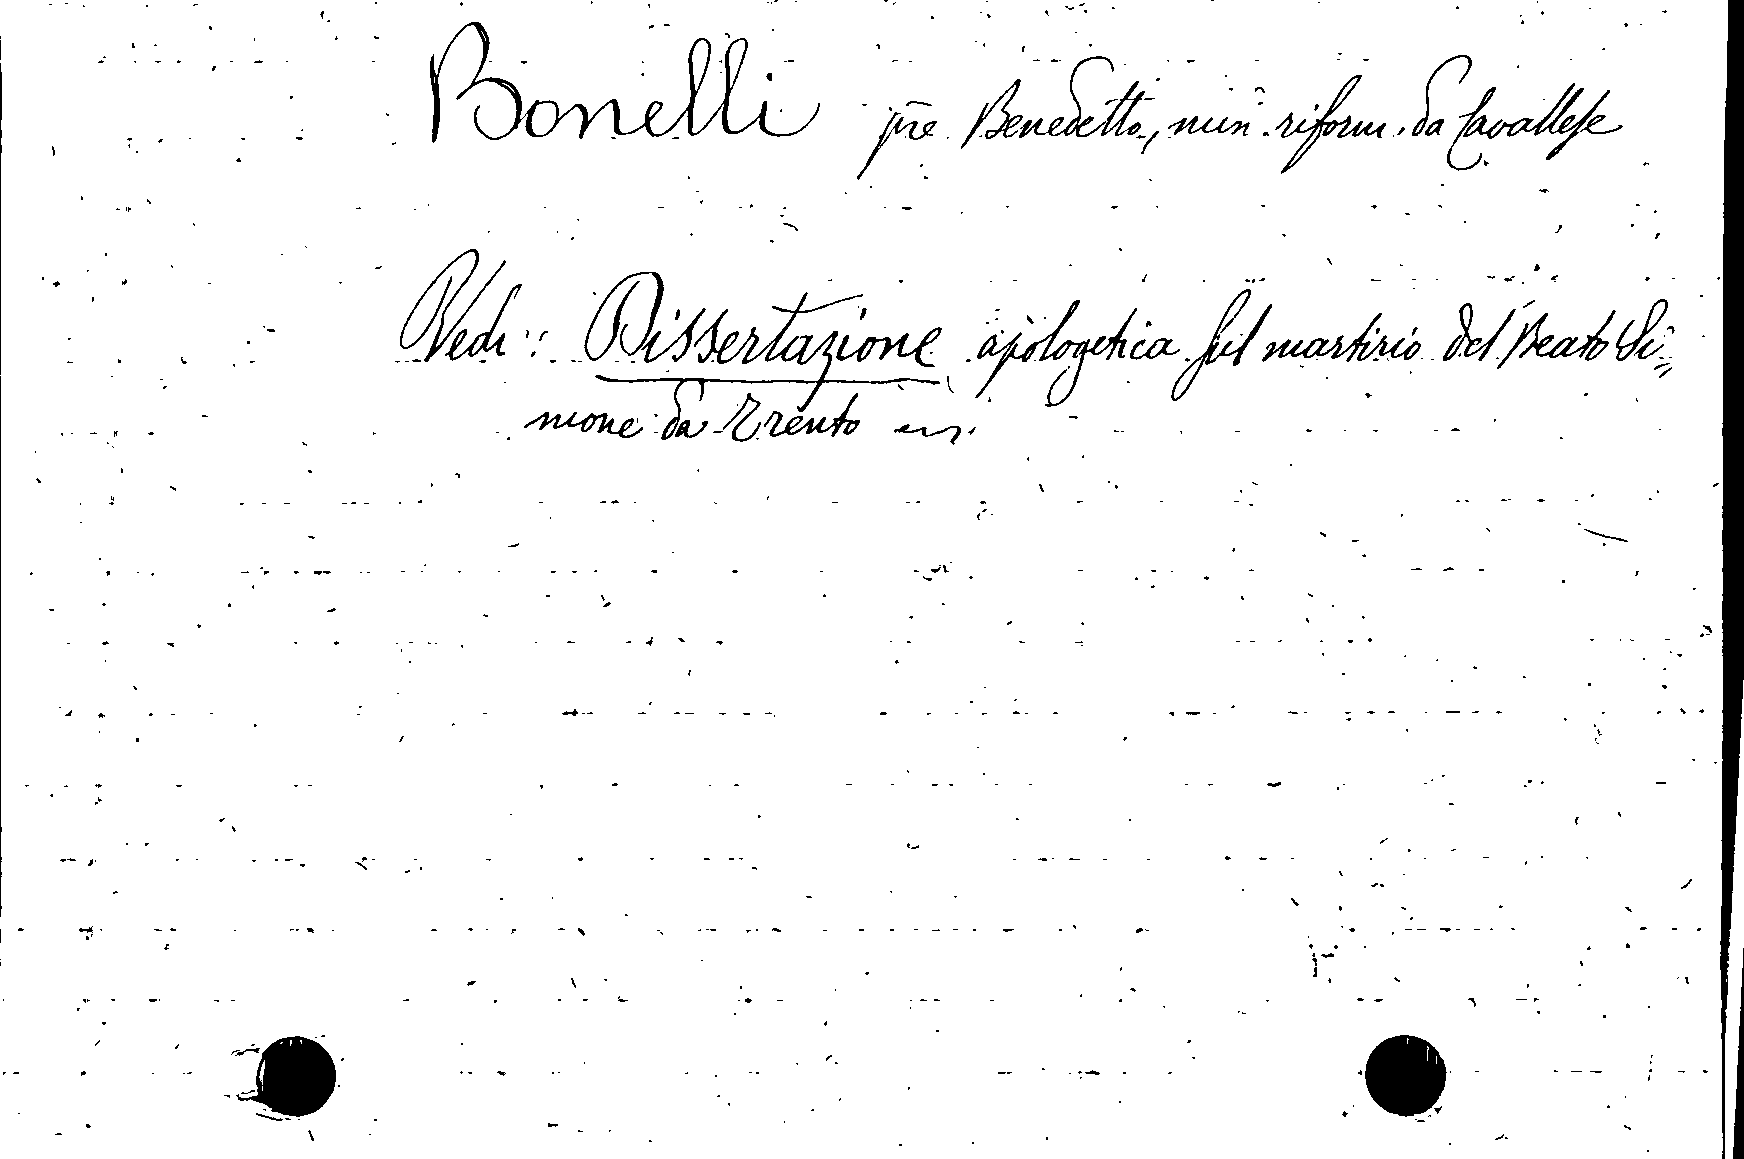 Bonelli pre Benedetto, min. riform. da Cavallese
Vedi: Dissertazione apologetica sul martirio del Beato Si=
mone da Trento